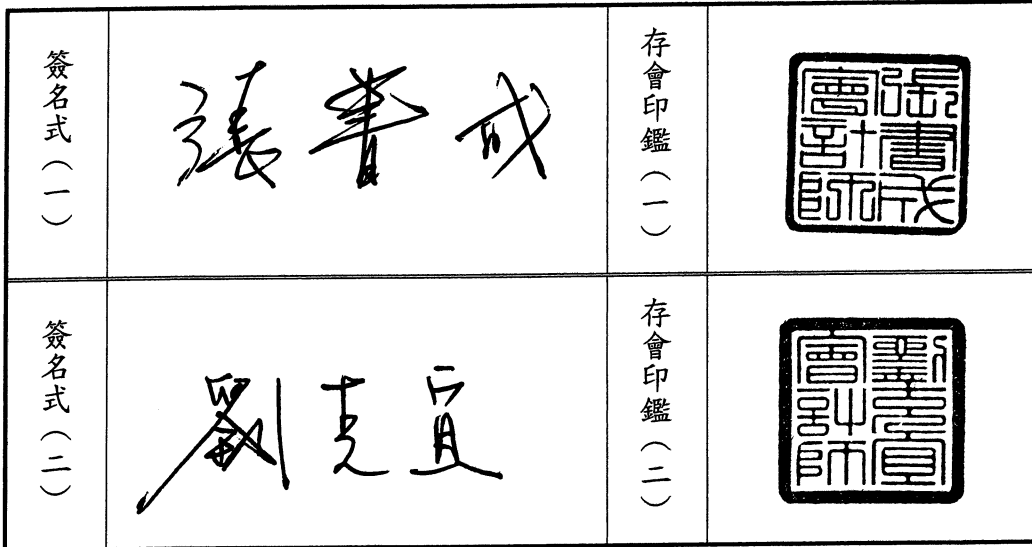 簽名式(一)
張書成
存會印鑑(一)
張書成會計師
簽名式(二)
劉克宜
存會印鑑(二)
劉克宜會計師